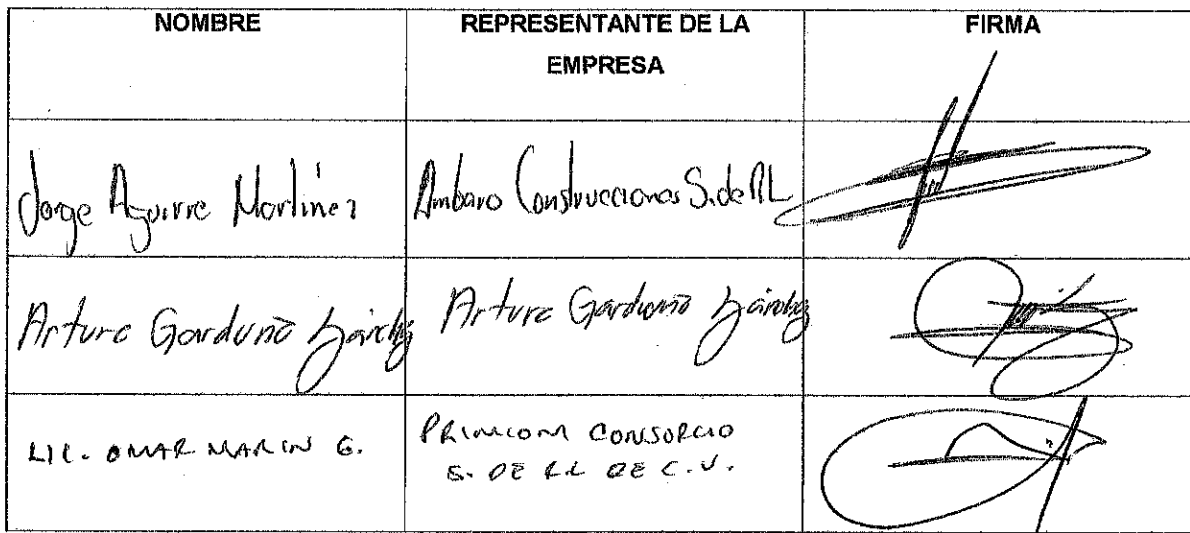 NOMBRE
REPRESENTANTE DE LA
EMPRESA
FIRMA
Jorge Aguirre Martinez
Ambaro Construcciones S. de RL
Arturo Garduño Sánchez
Arturo Garduño Sánchez
LIC. OMAR MARIN G.
PRIMCOM CONSORCIO
S. DE R.L DE C.V.